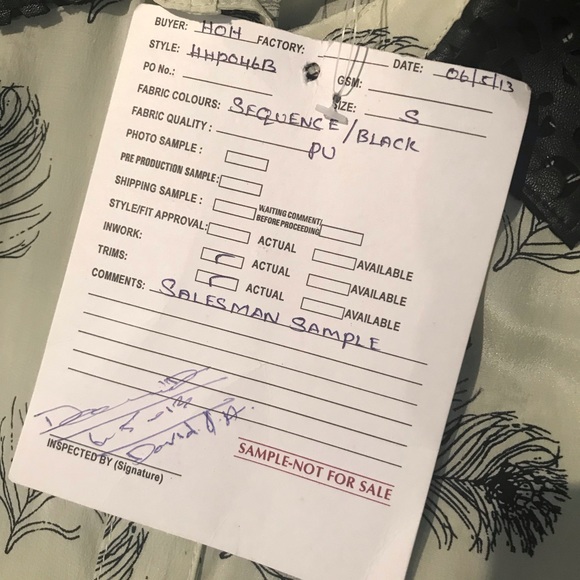 BUYER: HOH FACTORY: DATE: 06/5/13
STYLE: HHP046B GSM:
PO No.: SIZE: S
FABRIC COLOURS: SEQUENCE/BLACK
FABRIC QUALITY: PU
PHOTO SAMPLE:
PRE PRODUCTION SAMPLE:
SHIPPING SAMPLE: WAITING COMMENT, BEFORE PROCEEDING
STYLE/FIT APPROVAL: ACTUAL AVAILABLE
INWORK: ACTUAL AVAILABLE
TRIMS: ACTUAL AVAILABLE
COMMENTS: SALESMAN SAMPLE
David
INSPECTED BY (Signature)
SAMPLE-NOT FOR SALE